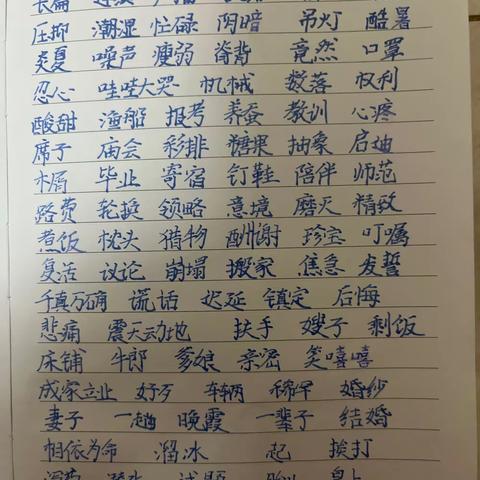 长篇
压抑 潮湿 忙碌 阴暗 吊灯 酷暑
炎夏 噪声 瘦弱 脊背 竟然 口罩
忍心 哇哇大哭 机械 数落 权利
酸甜 渔船 报考 养蚕 教训 心疼
席子 庙会 彩排 糖果 抽象 启迪
木屑 毕业 寄宿 钉鞋 陪伴 师范
路费 轮换 领略 意境 磨灭 精致
煮饭 枕头 猎物 酬谢 珍宝 叮嘱
复活 议论 崩塌 搬家 焦急 发誓
千真万确 谎话 迟延 镇定 后悔
悲痛 震天动地 扶手 嫂子 剩饭
床铺 牛郎 爹娘 亲密 笑嘻嘻
成家立业 好歹 车辆 稀罕 婚纱
妻子 一趟 晚霞 一辈子 结婚
相依为命 溜冰 起 挨打